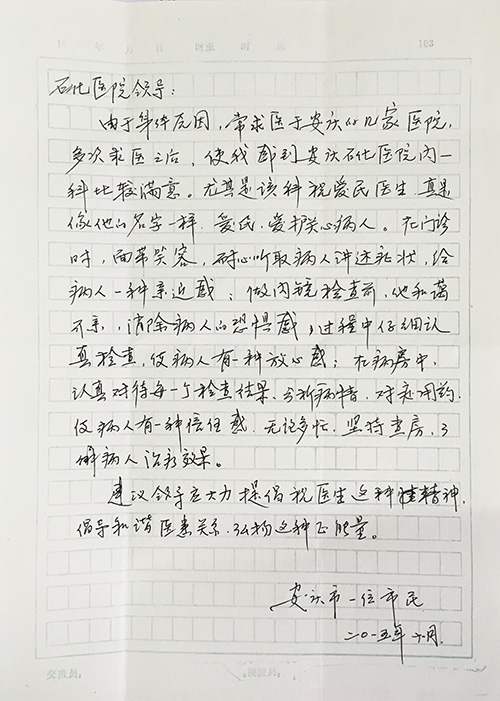 年 月 日 时至 时 103
石化医院领导：
由于身体原因，常求医于安庆的几家医院，
多次求医之后，使我感到安庆石化医院内一
科比较满意。尤其是该科祝爱民医生，真是
像他的名字一样，爱民，爱护关心病人。在门诊
时，面带笑容，耐心听取病人讲述症状，给
病人一种亲近感；做内镜检查前，他和蔼
可亲，消除病人的恐惧感，过程中仔细认
真检查，使病人有一种放心感；在病房中，
认真对待每一个检查结果，分析病情，对症用药，
使病人有一种信任感，无论多忙，坚持查房，了
解病人治疗效果。
建议领导应大力提倡祝医生这种精神，
倡导和谐医患关系，弘扬这种正能量。
安庆市一位市民
二〇一五年 月
交班员： 接班员：